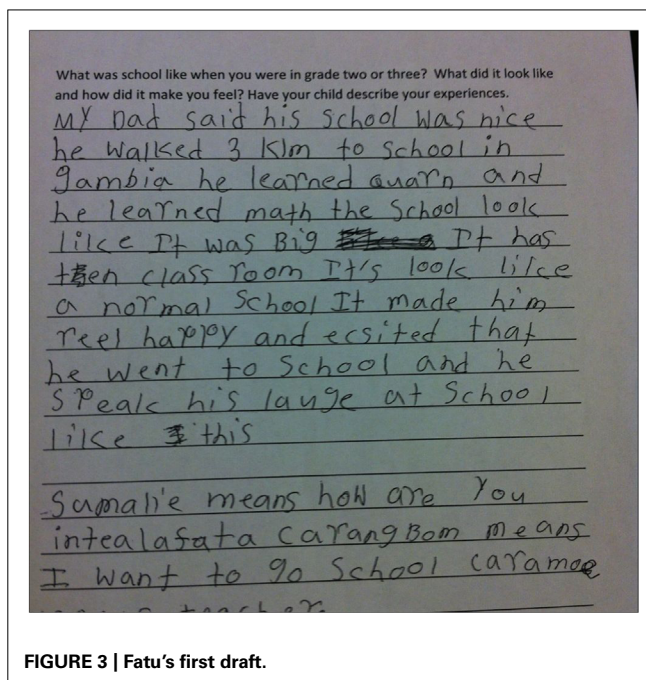 What was school like when you were in grade two or three? What did it look like
and how did it make you feel? Have your child describe your experiences.
MY Dad said his school was nice
he walked 3 Klm to school in
gambia he learned quarn and
he learned math the School look
like It was Big It has
ten class room It's look like
a normal School It made him
reel happy and ecsited that
he went to School and he
speak his lauge at School
like this
Sumalie means how are You
intealafata carangBom means
I want to go School caramoe
teacher.
FIGURE 3 | Fatu's first draft.